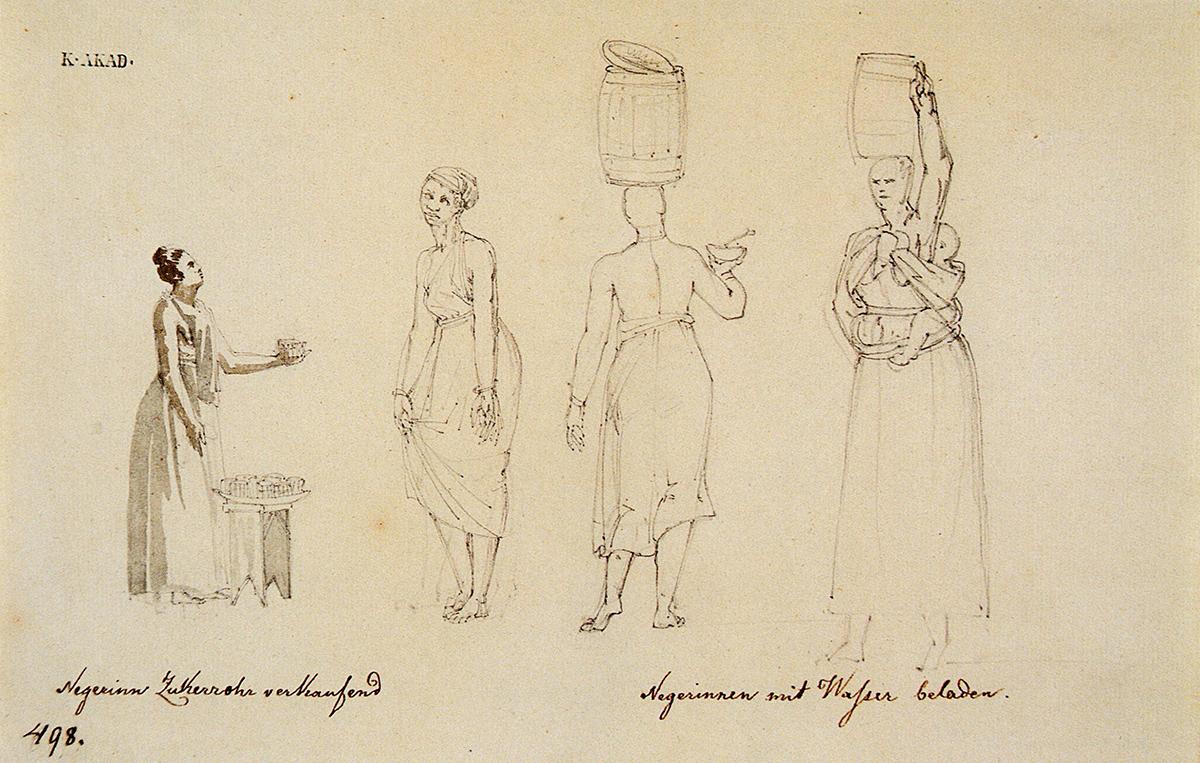 K·AKAD·
Negerinn Zukerrohr verkaufend
Negerinnen mit Waſser beladen.
498.